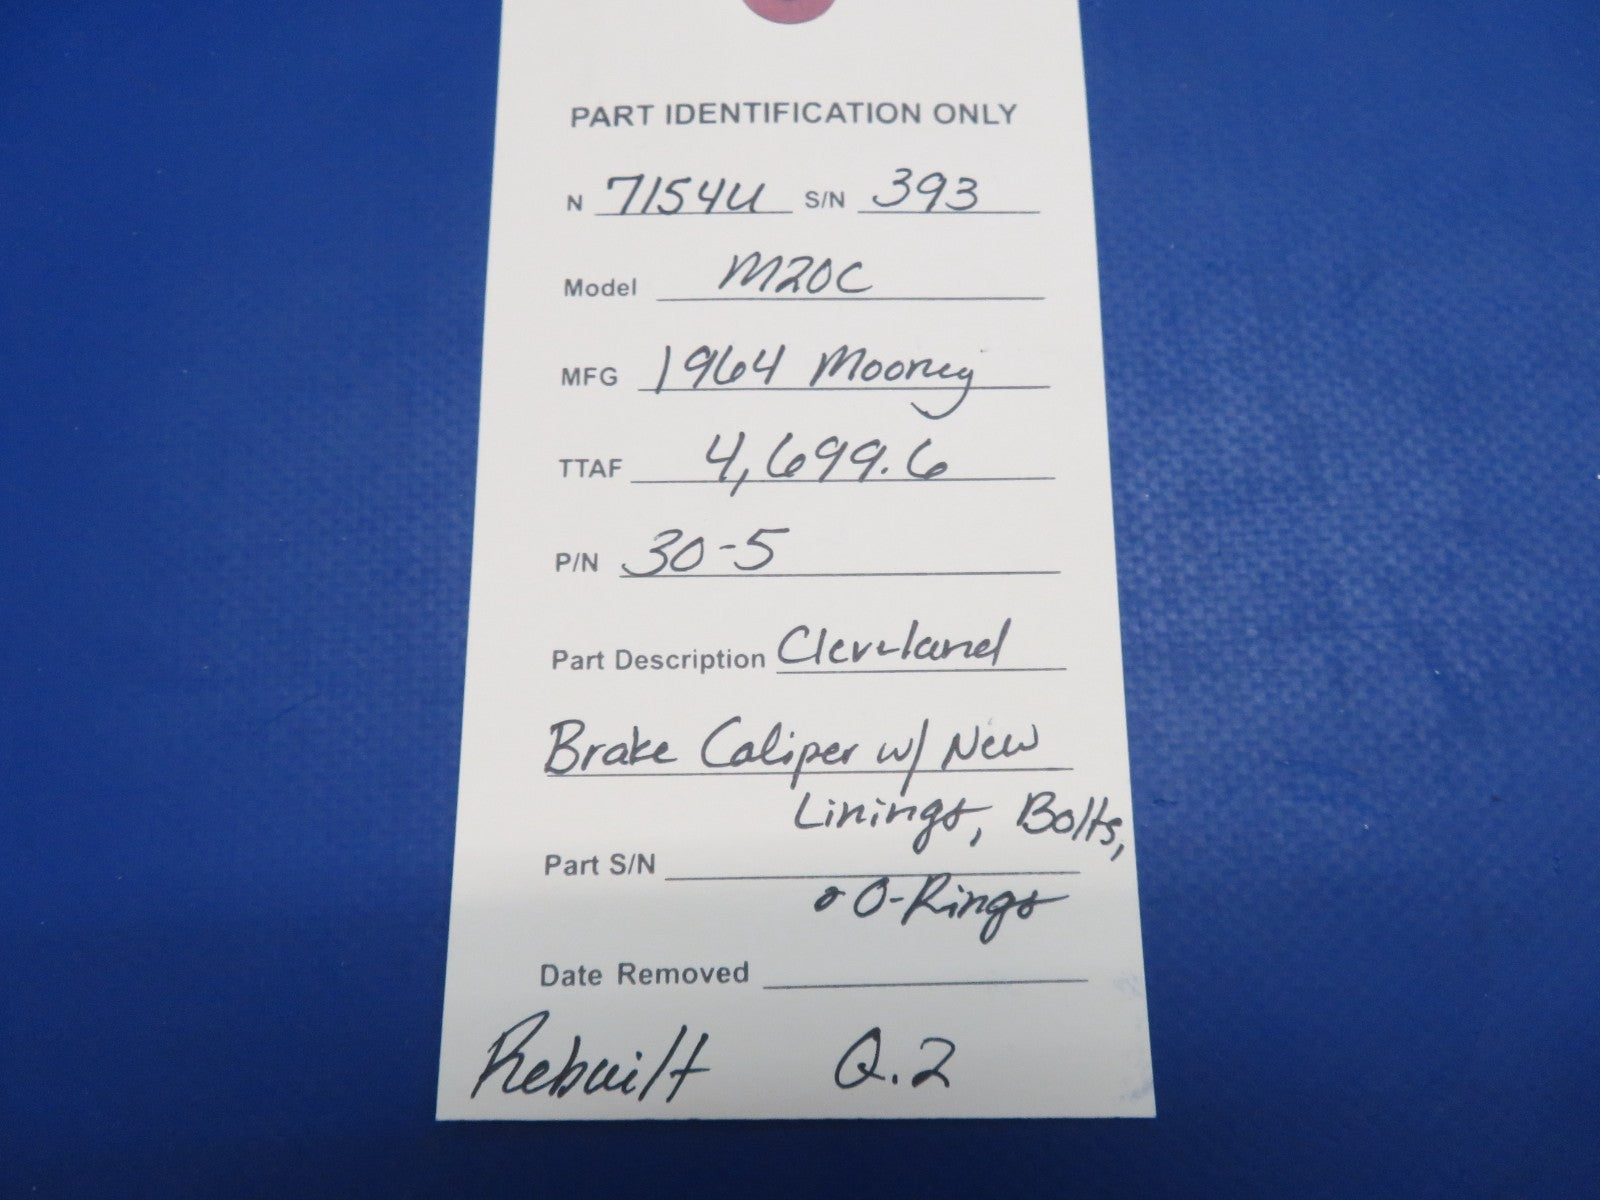 PART IDENTIFICATION ONLY
N 7154U S/N 393
Model M20C
MFG 1964 Mooney
TTAF 4,699.6
P/N 30-5
Part Description Cleveland
Brake Caliper w/ New
Linings, Bolts,
Part S/N
& O-Rings
Date Removed
Rebuilt Q.2